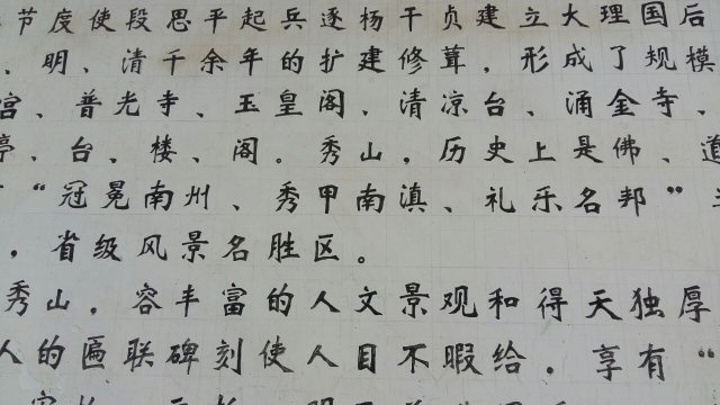 节度使段思平起兵逐杨干贞建立大理国后
、明、清千余年的扩建修葺，形成了规模
宫、普光寺、玉皇阁、清凉台、涌金寺、
亭、台、楼、阁。秀山，历史上是佛、道
“冠冕南州、秀甲南滇、礼乐名邦”
，省级风景名胜区。
秀山，容丰富的人文景观和得天独厚
人的匾联碑刻使人目不暇给，享有“